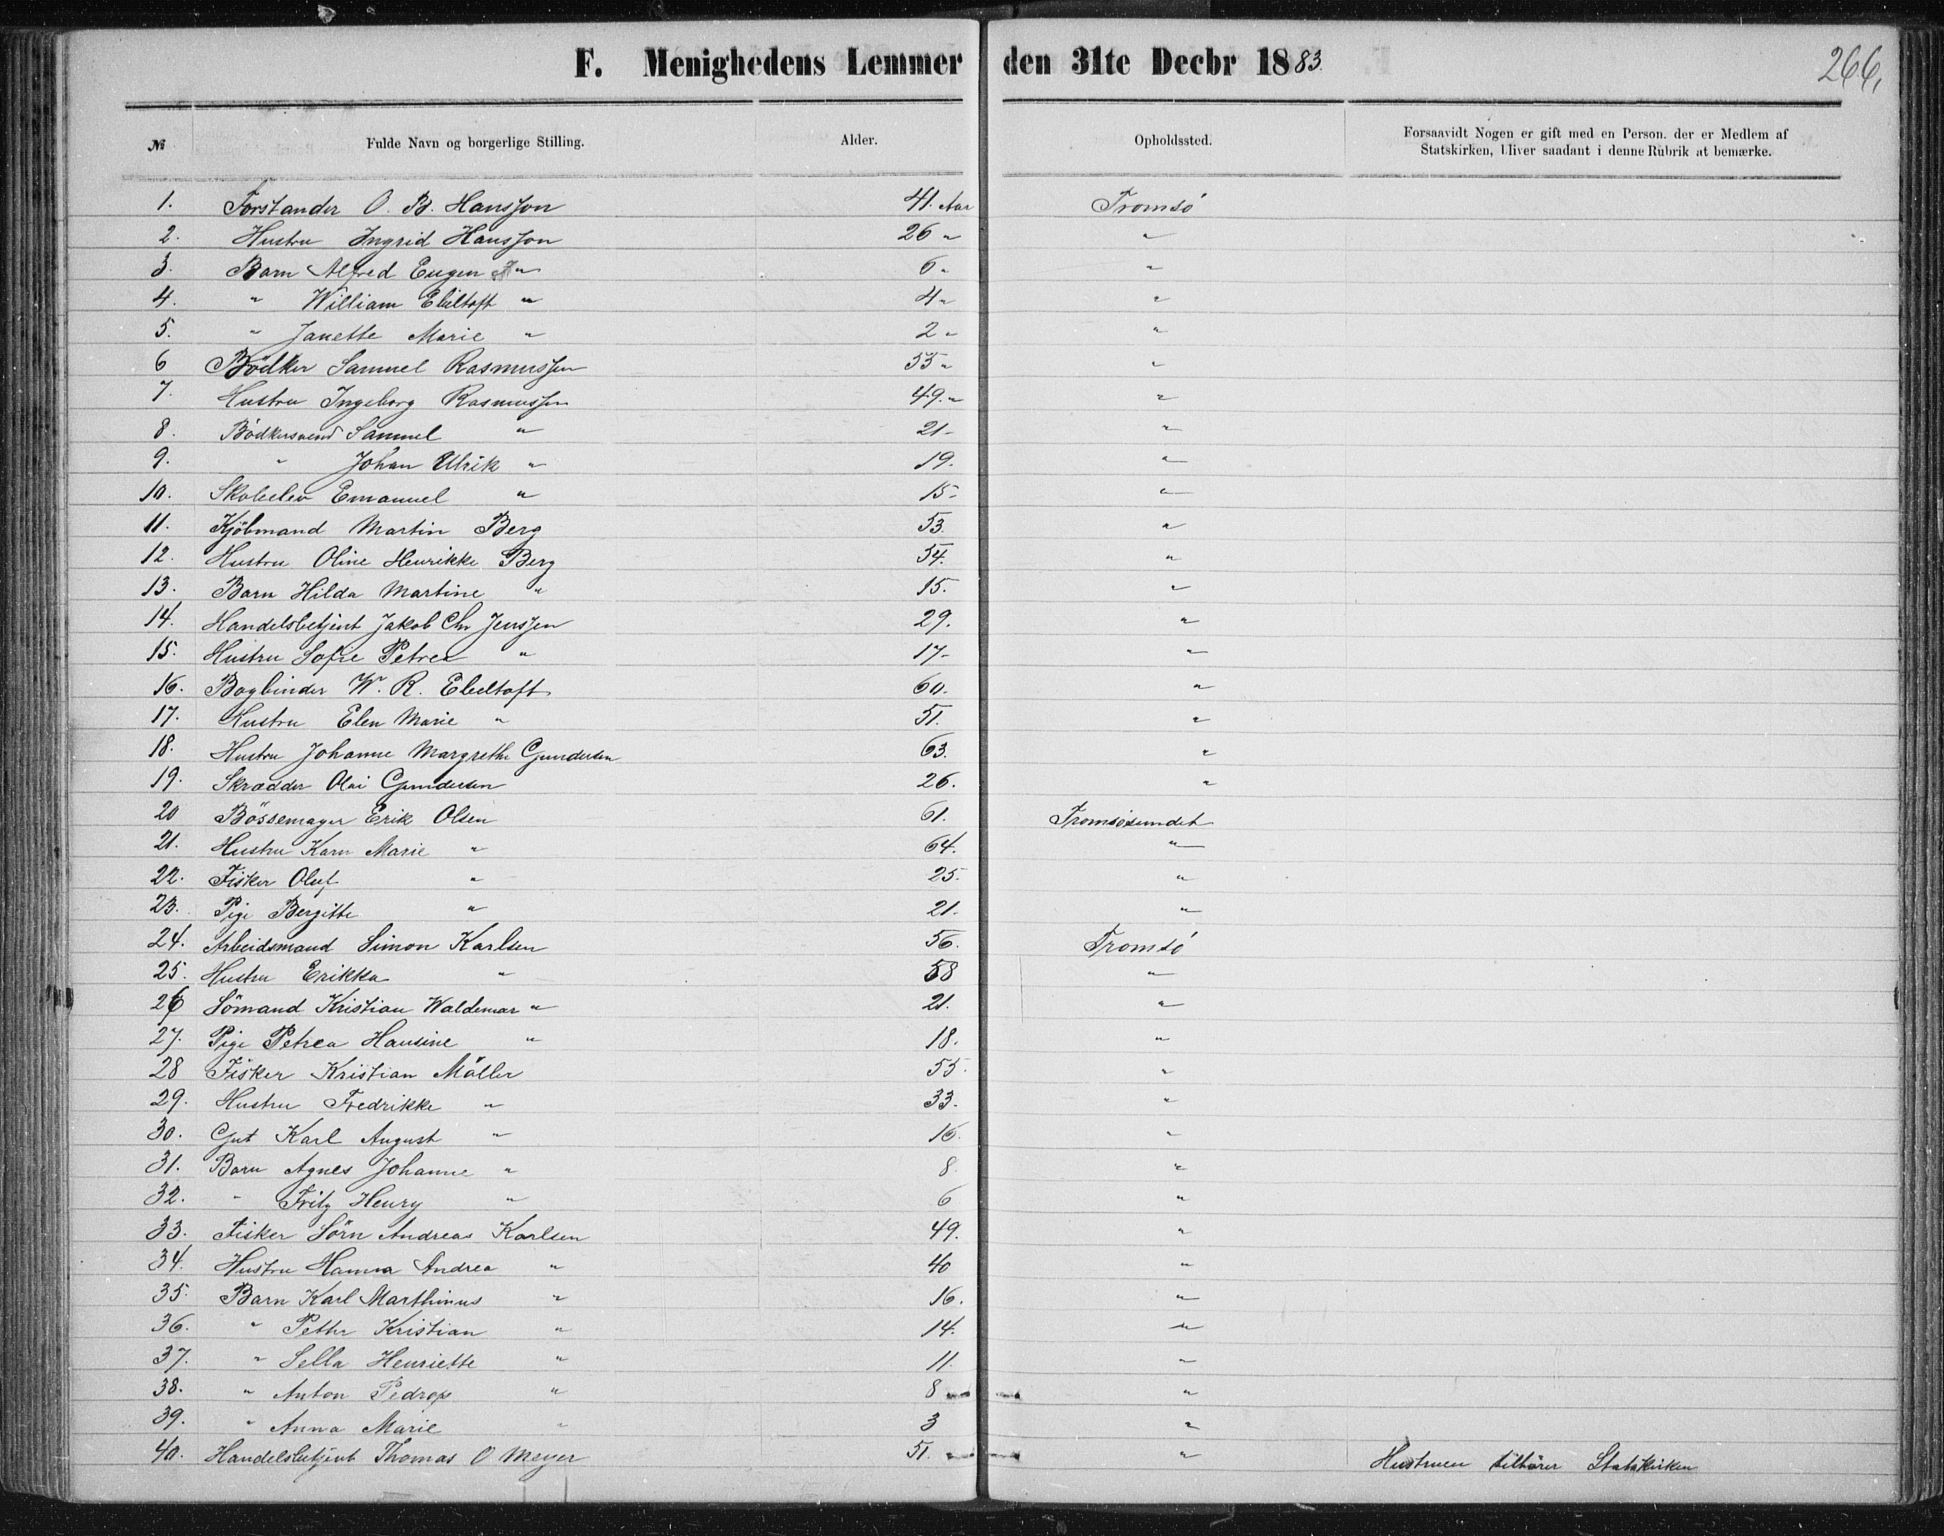 F. Menighedens Lemmer den 31te Decbr 1883.
266,
№ Fulde Navn og borgerlige Stilling. Alder. Opholdssted. Forsaavidt Nogen er gift med en Person, der er Medlem af
Statskirken, bliver saadant i denne Rubrik at bemærke.
1. Forstander O. B. Hansson 41. Aar Tromsö
2. Hustru Ingrid Hansson 26 " "
3. Barn Alfred Eugen " 6 " "
4. " William Ebeltoft " 4 " "
5. " Janette Marie " 2 " "
6 Bödker Samuel Rasmussen 55 " "
7. Hustru Ingeborg Rasmussen 49. " "
8. Bödkersvend Samuel " 21 "
9. " Johan Ulrik " 19. "
10. Skoleelev Emanuel " 15 "
11. Kjöbmand Martin Berg 53. "
12. Hustru Oline Henrikke Berg 54. "
13. Barn Hilda Martine " 15. "
14. Handelsbetjent Jakob Chr Jenssen 29. "
15. Hustru Sofie Petrea " 17 "
16. Bogbinder W. R. Ebeltoft 60. "
17. Hustru Elen Marie " 51. "
18. Hustru Johanne Margrethe Gundersen 63. "
19. Skrædder Olai Gundersen 26. "
20 Bössemager Erik Olsen 61. Tromsösundet
21. Hustru Karn Marie " 64. "
22. Fisker Oluf " 25. "
23. Pige Bergitte " 21. "
24. Arbeidsmand Simon Karlsen 56. Tromsö
25. Hustru Erikka " 58 "
26 Sömand Kristian Waldemar " 21. "
27. Pige Petrea Hansine " 18. "
28 Fisker Kristian Möller 55. "
29. Hustru Fredrikke " 33. "
30. Gut Karl August " 16. "
31. Barn Agnes Johanne " 8. "
32. " Fritz Henry " 6 "
33. Fisker Sörn Andreas Karlsen 49. "
34. Hustru Hanna Andrea " 40 "
35. Barn Karl Marthinus " 16. "
36. " Petter Kristian " 14. "
37. " Sella Henriette " 11. "
38. " Anton " 8 "
39. " Anna Marie " 3 "
40. Handelsbetjent Thomas O Meyer 51. " Hustruen tilhörer Statskirken